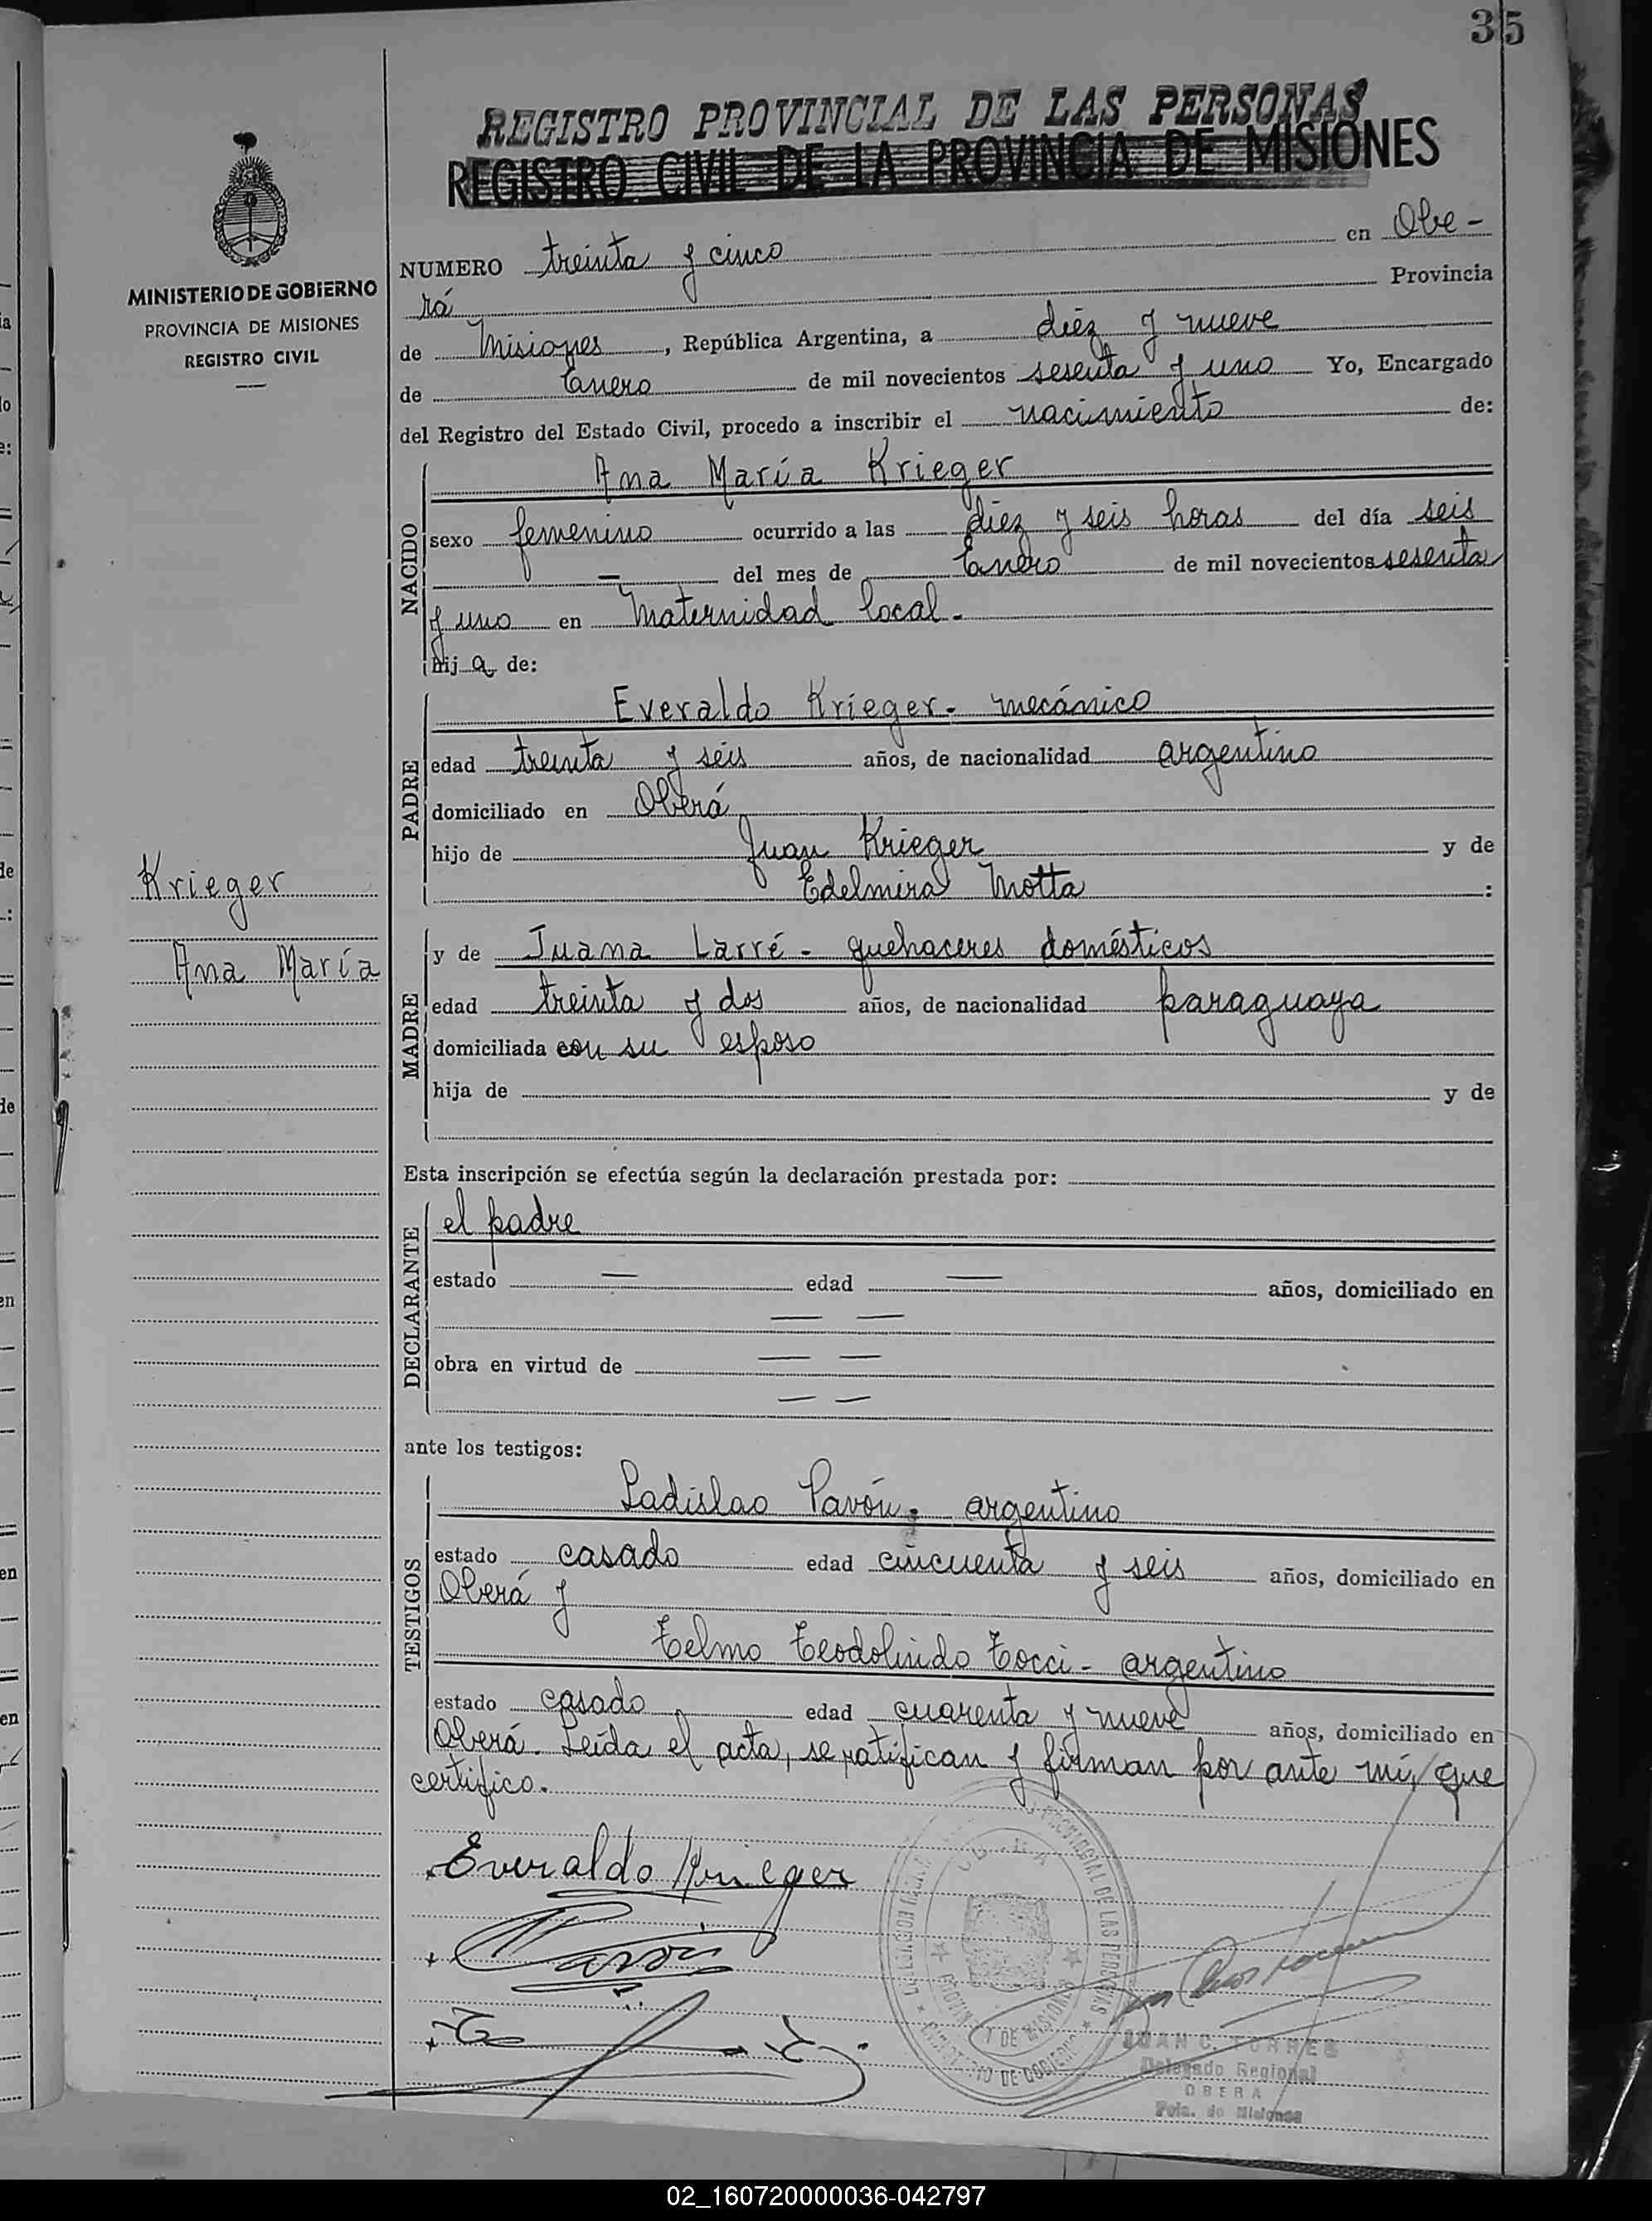 35
REGISTRO PROVINCIAL DE LAS PERSONAS
REGISTRO CIVIL DE LA PROVINCIA DE MISIONES
MINISTERIO DE GOBIERNO
PROVINCIA DE MISIONES
REGISTRO CIVIL
NUMERO treinta y cinco en Obe-
rá Provincia
de Misiones, República Argentina, a diez y nueve
de Enero de mil novecientos sesenta y uno Yo, Encargado
del Registro del Estado Civil, procedo a inscribir el nacimiento de:
NACIDO
Ana María Krieger
sexo femenino ocurrido a las diez y seis horas del día seis
— del mes de Enero de mil novecientos sesenta
y uno en Maternidad local.-
hij a de:
PADRE
Everaldo Krieger.- mecánico
edad treinta y seis años, de nacionalidad argentino
domiciliado en Oberá
hijo de Juan Krieger y de
Edelmira Motta :
Krieger
Ana María
MADRE
y de Juana Larré - quehaceres domésticos
edad treinta y dos años, de nacionalidad paraguaya
domiciliada con su esposo
hija de y de
Esta inscripción se efectúa según la declaración prestada por:
DECLARANTE
el padre
estado — edad — años, domiciliado en
— —
obra en virtud de — —
— —
ante los testigos:
TESTIGOS
Ladislao Pavón.- argentino
estado casado edad cincuenta y seis años, domiciliado en
Oberá y
Telmo Teodolindo Tocci - argentino
estado casado edad cuarenta y nueve años, domiciliado en
Oberá. Leída el acta, se ratifican y firman por ante mí, que
certifico.
Everaldo Krieger
Pavón
PROVINCIAL DE LAS PERSONAS
PROVINCIA DE MISIONES
MINISTERIO DE GOBIERNO
JUAN C. TORRES
Delegado Regional
OBERA
Pcia. de Misiones
02_160720000036-042797